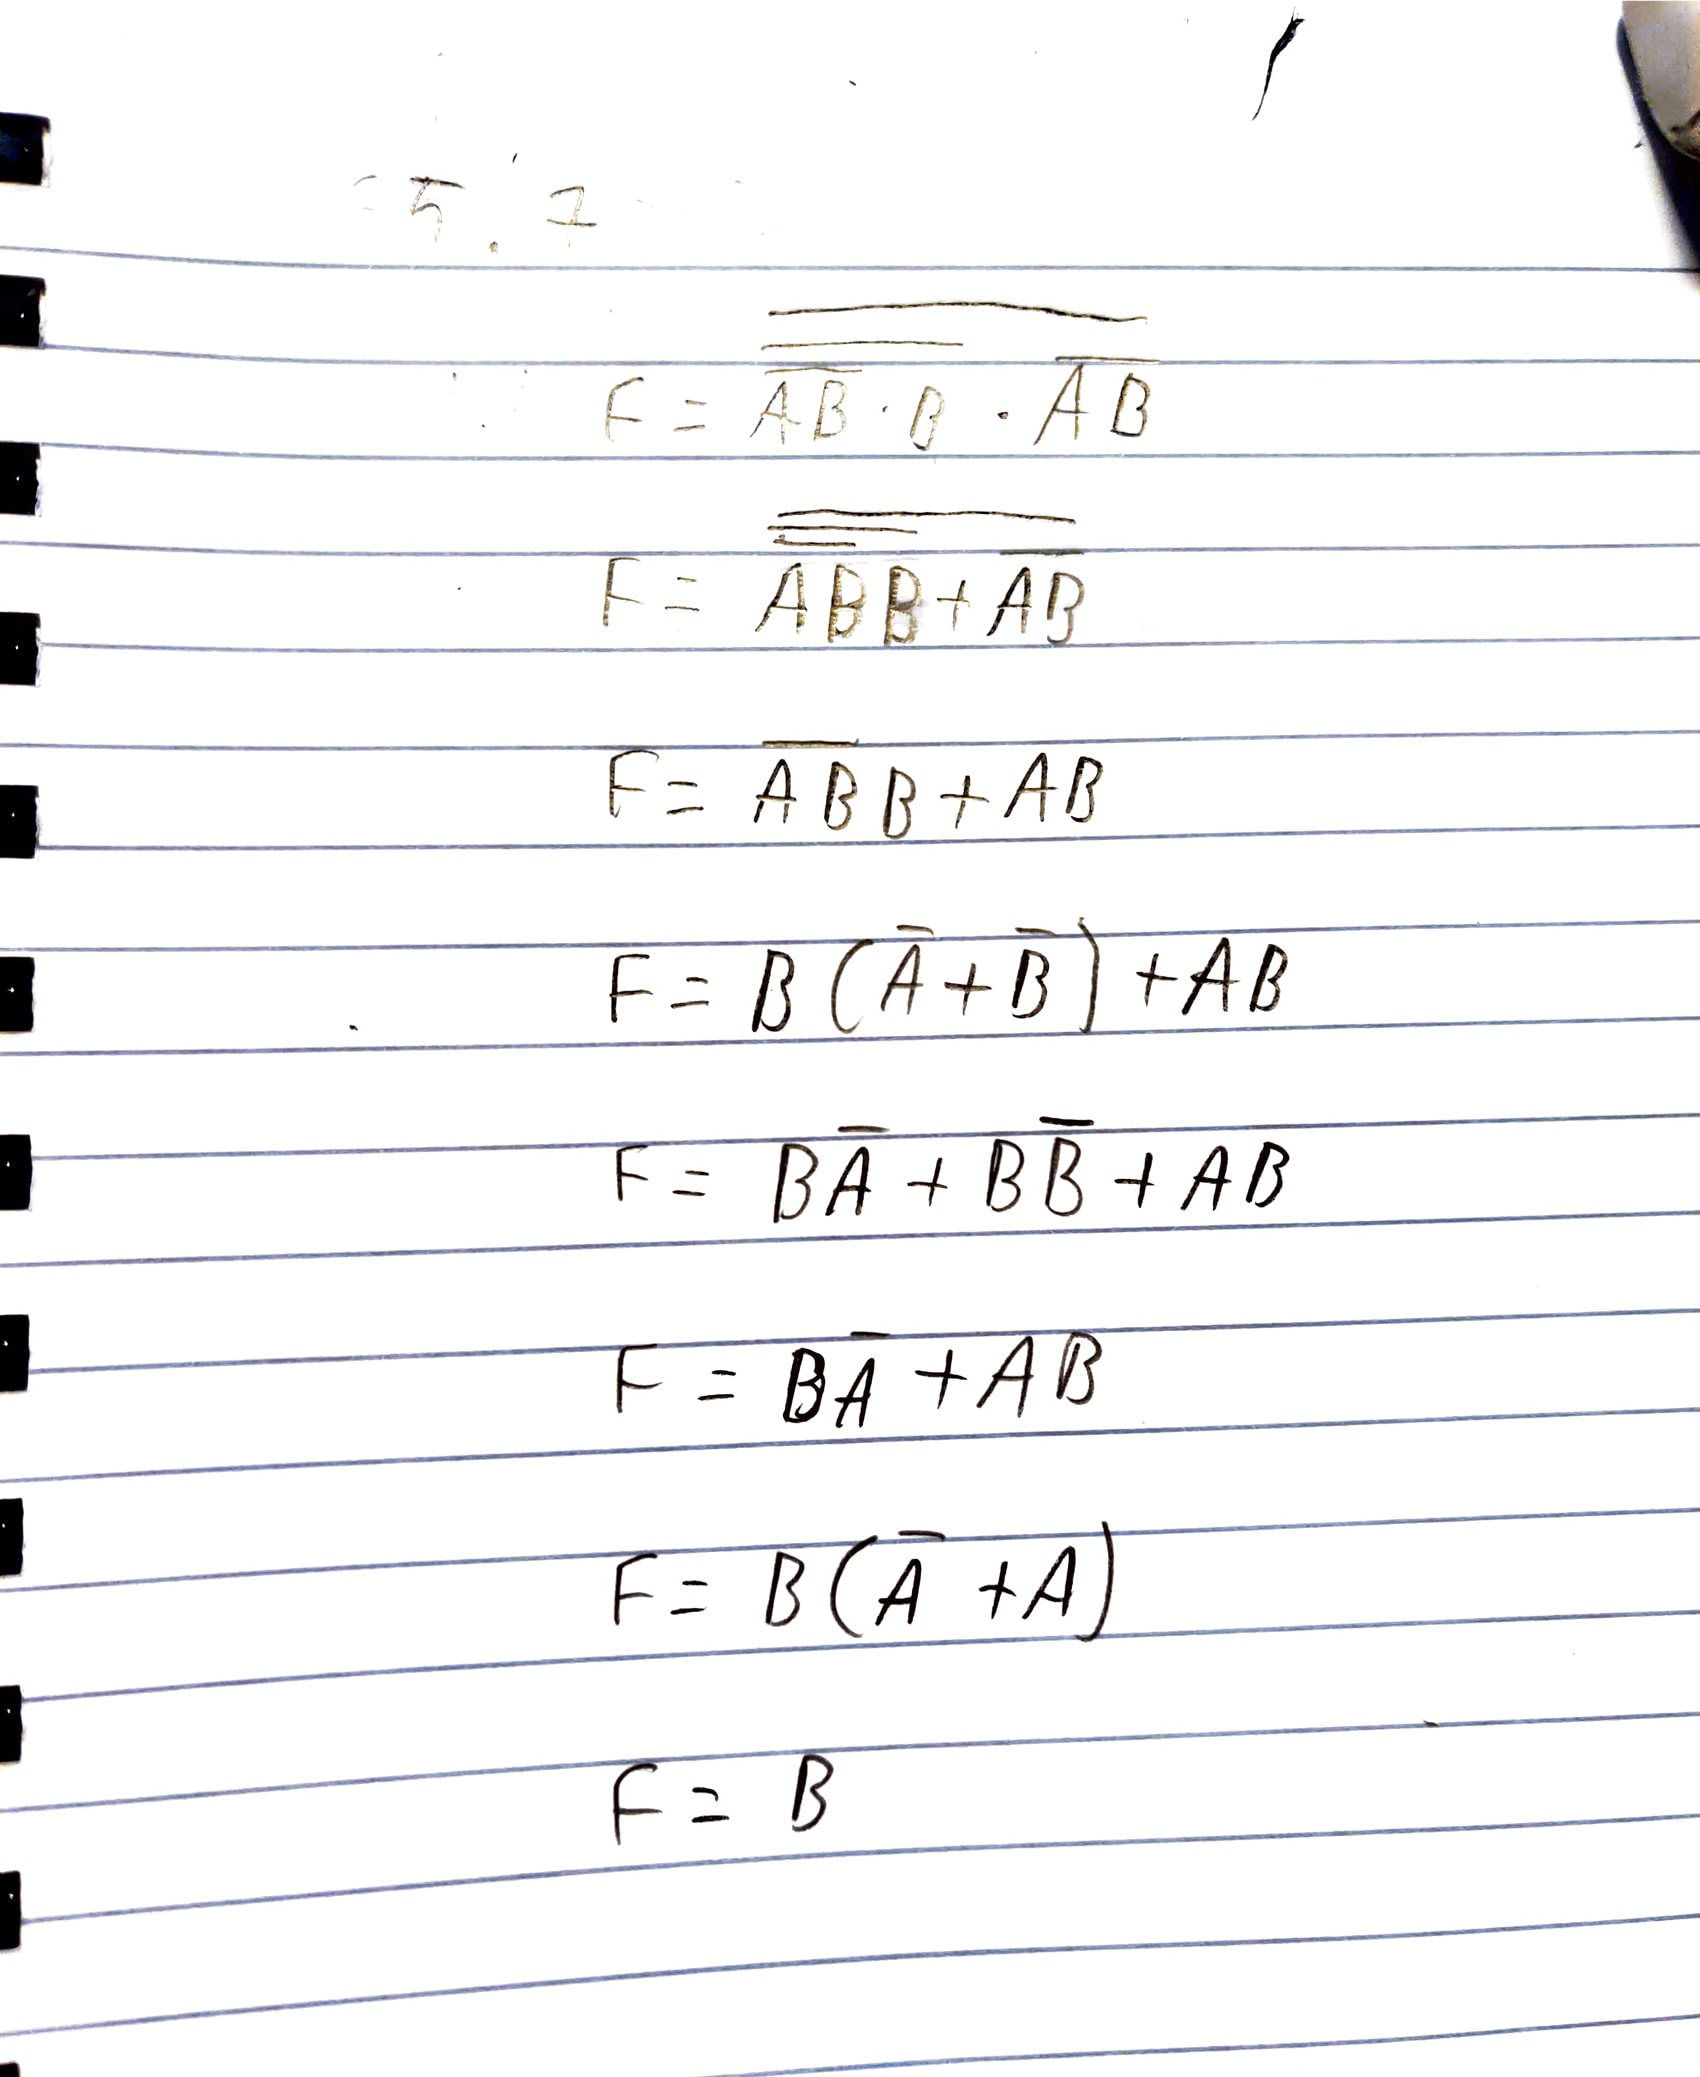 5.1
F = \overline{\overline{\overline{AB} \cdot B} \cdot \overline{AB}}
F = \overline{\overline{\overline{AB}B}} + \overline{\overline{AB}}
F = \overline{AB}B + AB
F = B(\bar{A} + \bar{B}) + AB
F = B\bar{A} + B\bar{B} + AB
F = B\bar{A} + AB
F = B(\bar{A} + A)
F = B